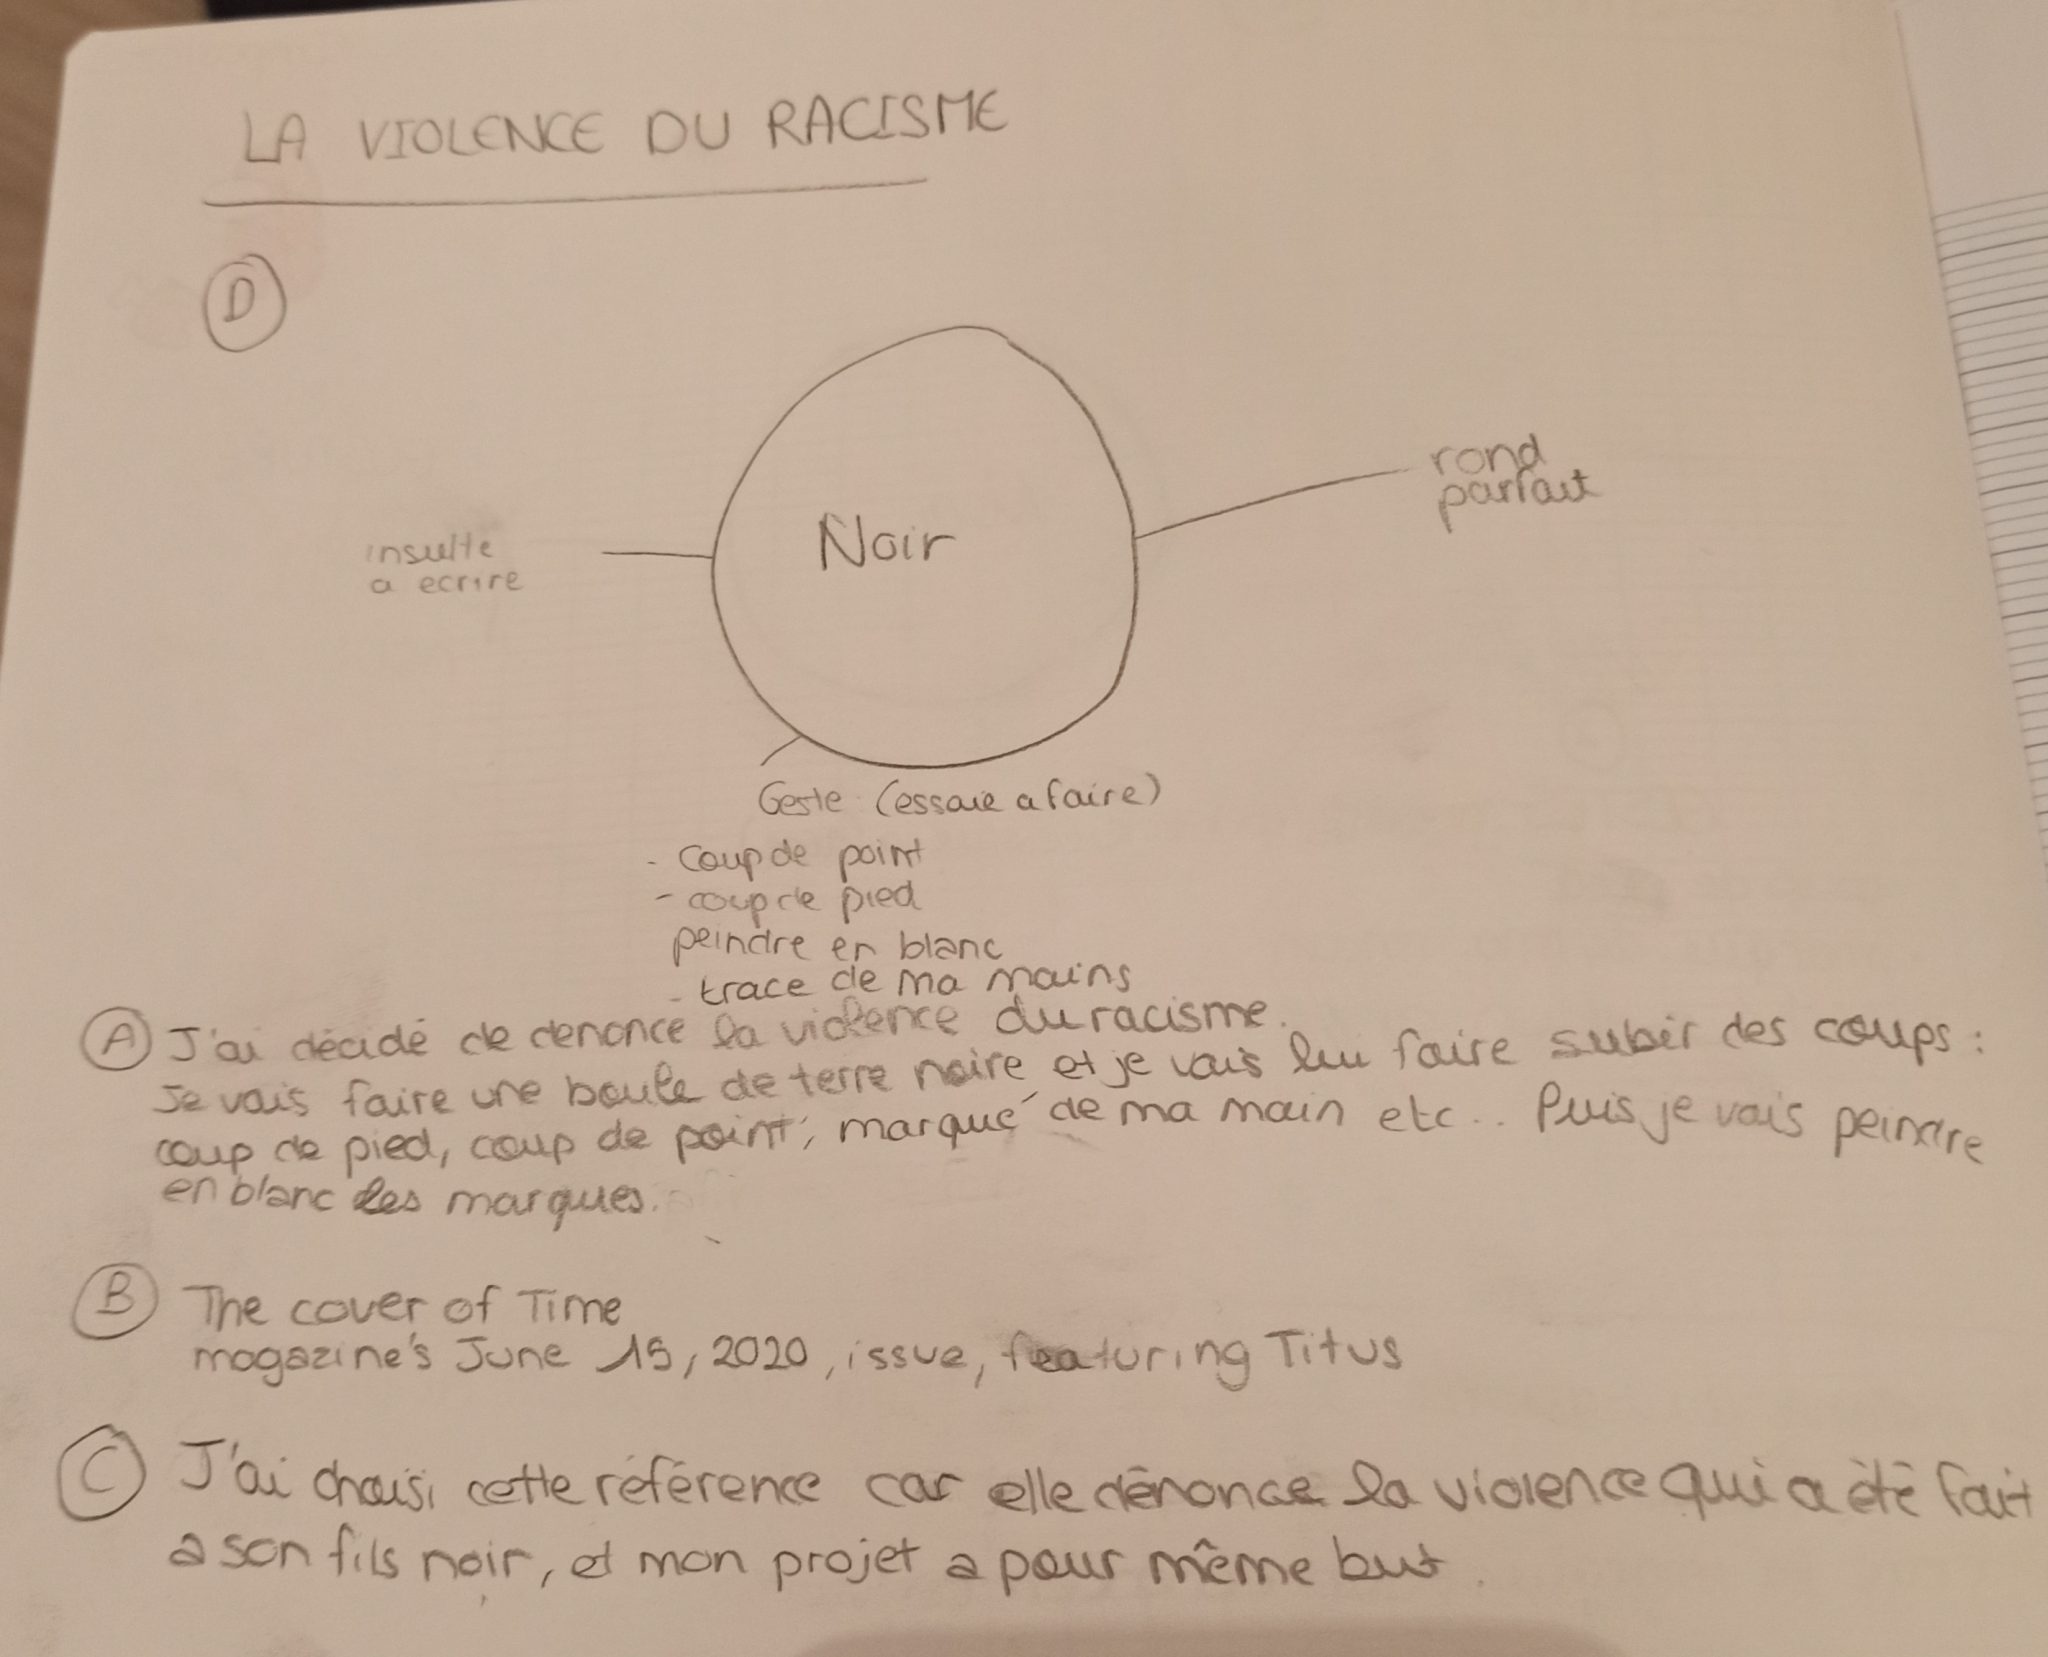 LA VIOLENCE DU RACISME
D
rond
parfait
Noir
insulte
a ecrire
Geste (essaie a faire)
- Coup de point
- coup de pied
peindre en blanc
- trace de ma mains
A J'ai décidé de denonce la violence du racisme.
Je vais faire une boule de terre noire et je vais lui faire subir des coups :
coup de pied, coup de point, marque de ma main etc... Puis je vais peindre
en blanc les marques.
B The cover of Time
magazine's June 15, 2020, issue, featuring Titus
C J'ai choisi cette référence car elle dénonce la violence qui a été fait
a son fils noir, et mon projet a pour même but.